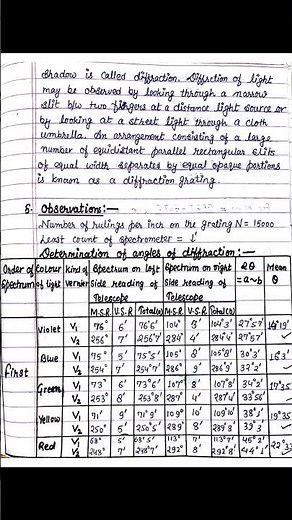 shadow is called diffraction. Diffrction of light
may be observed by looking through a narrow
slit b/w two fingers at a distance light source or
by looking at a street light through a cloth
umbrella. An arrangement consisting of a large
number of equidistant parallel rectangular slits
of equal width separates by equal opaque portions
is known as a diffraction grating.
5. Observations:—
Number of rulings per inch on the grating N = 15000
Least count of spectrometer = 1'
Determination of angles of diffraction:—
Order of Spectrum Colour of light Kind of vernier Spectrum on left Side reading of Telescope Spectrum on right Side reading of Telescope 2θ = a~b Mean θ
M.S.R. V.S.R Total(a) M.S.R. V.S.R Total(b)
First
Violet V1 76° 6' 76°6' 104° 3' 104°3' 27°57'
V2 256° 7' 256°7' 284° 4' 284°4' 27°57'
Blue V1 75° 5' 75°5' 105° 8' 105°8' 30°3' 16°3'
V2 254° 7' 254°7' 286° 9' 286°9' 32°2'
Green V1 73° 6' 73°6' 107° 8' 107°8' 34°2' 17°35
V2 253° 8' 253°8' 287° 4' 287°4' 33°56'
Yellow V1 71° 9' 71°9' 109° 10' 109°10' 38°1' 19°35
V2 250° 5' 250°5' 289° 8' 289°8' 39°3'
Red V1 68° 5' 68°5' 113° 7' 113°7' 45°2' 22°35
V2 248° 7' 248°7' 292° 8' 292°8' 44°1'